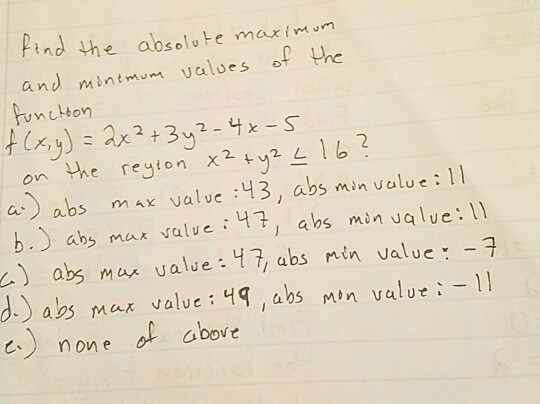 find the absolute maximum
and minimum values of the
function
f(x,y) = 2x² + 3y² - 4x - 5
on the reyion x² + y² ≤ 16?
a.) abs max value : 43, abs min value : 11
b.) abs max value : 47, abs min value : 11
c.) abs max value : 47, abs min value : -7
d.) abs max value : 49, abs min value : -11
e.) none of above